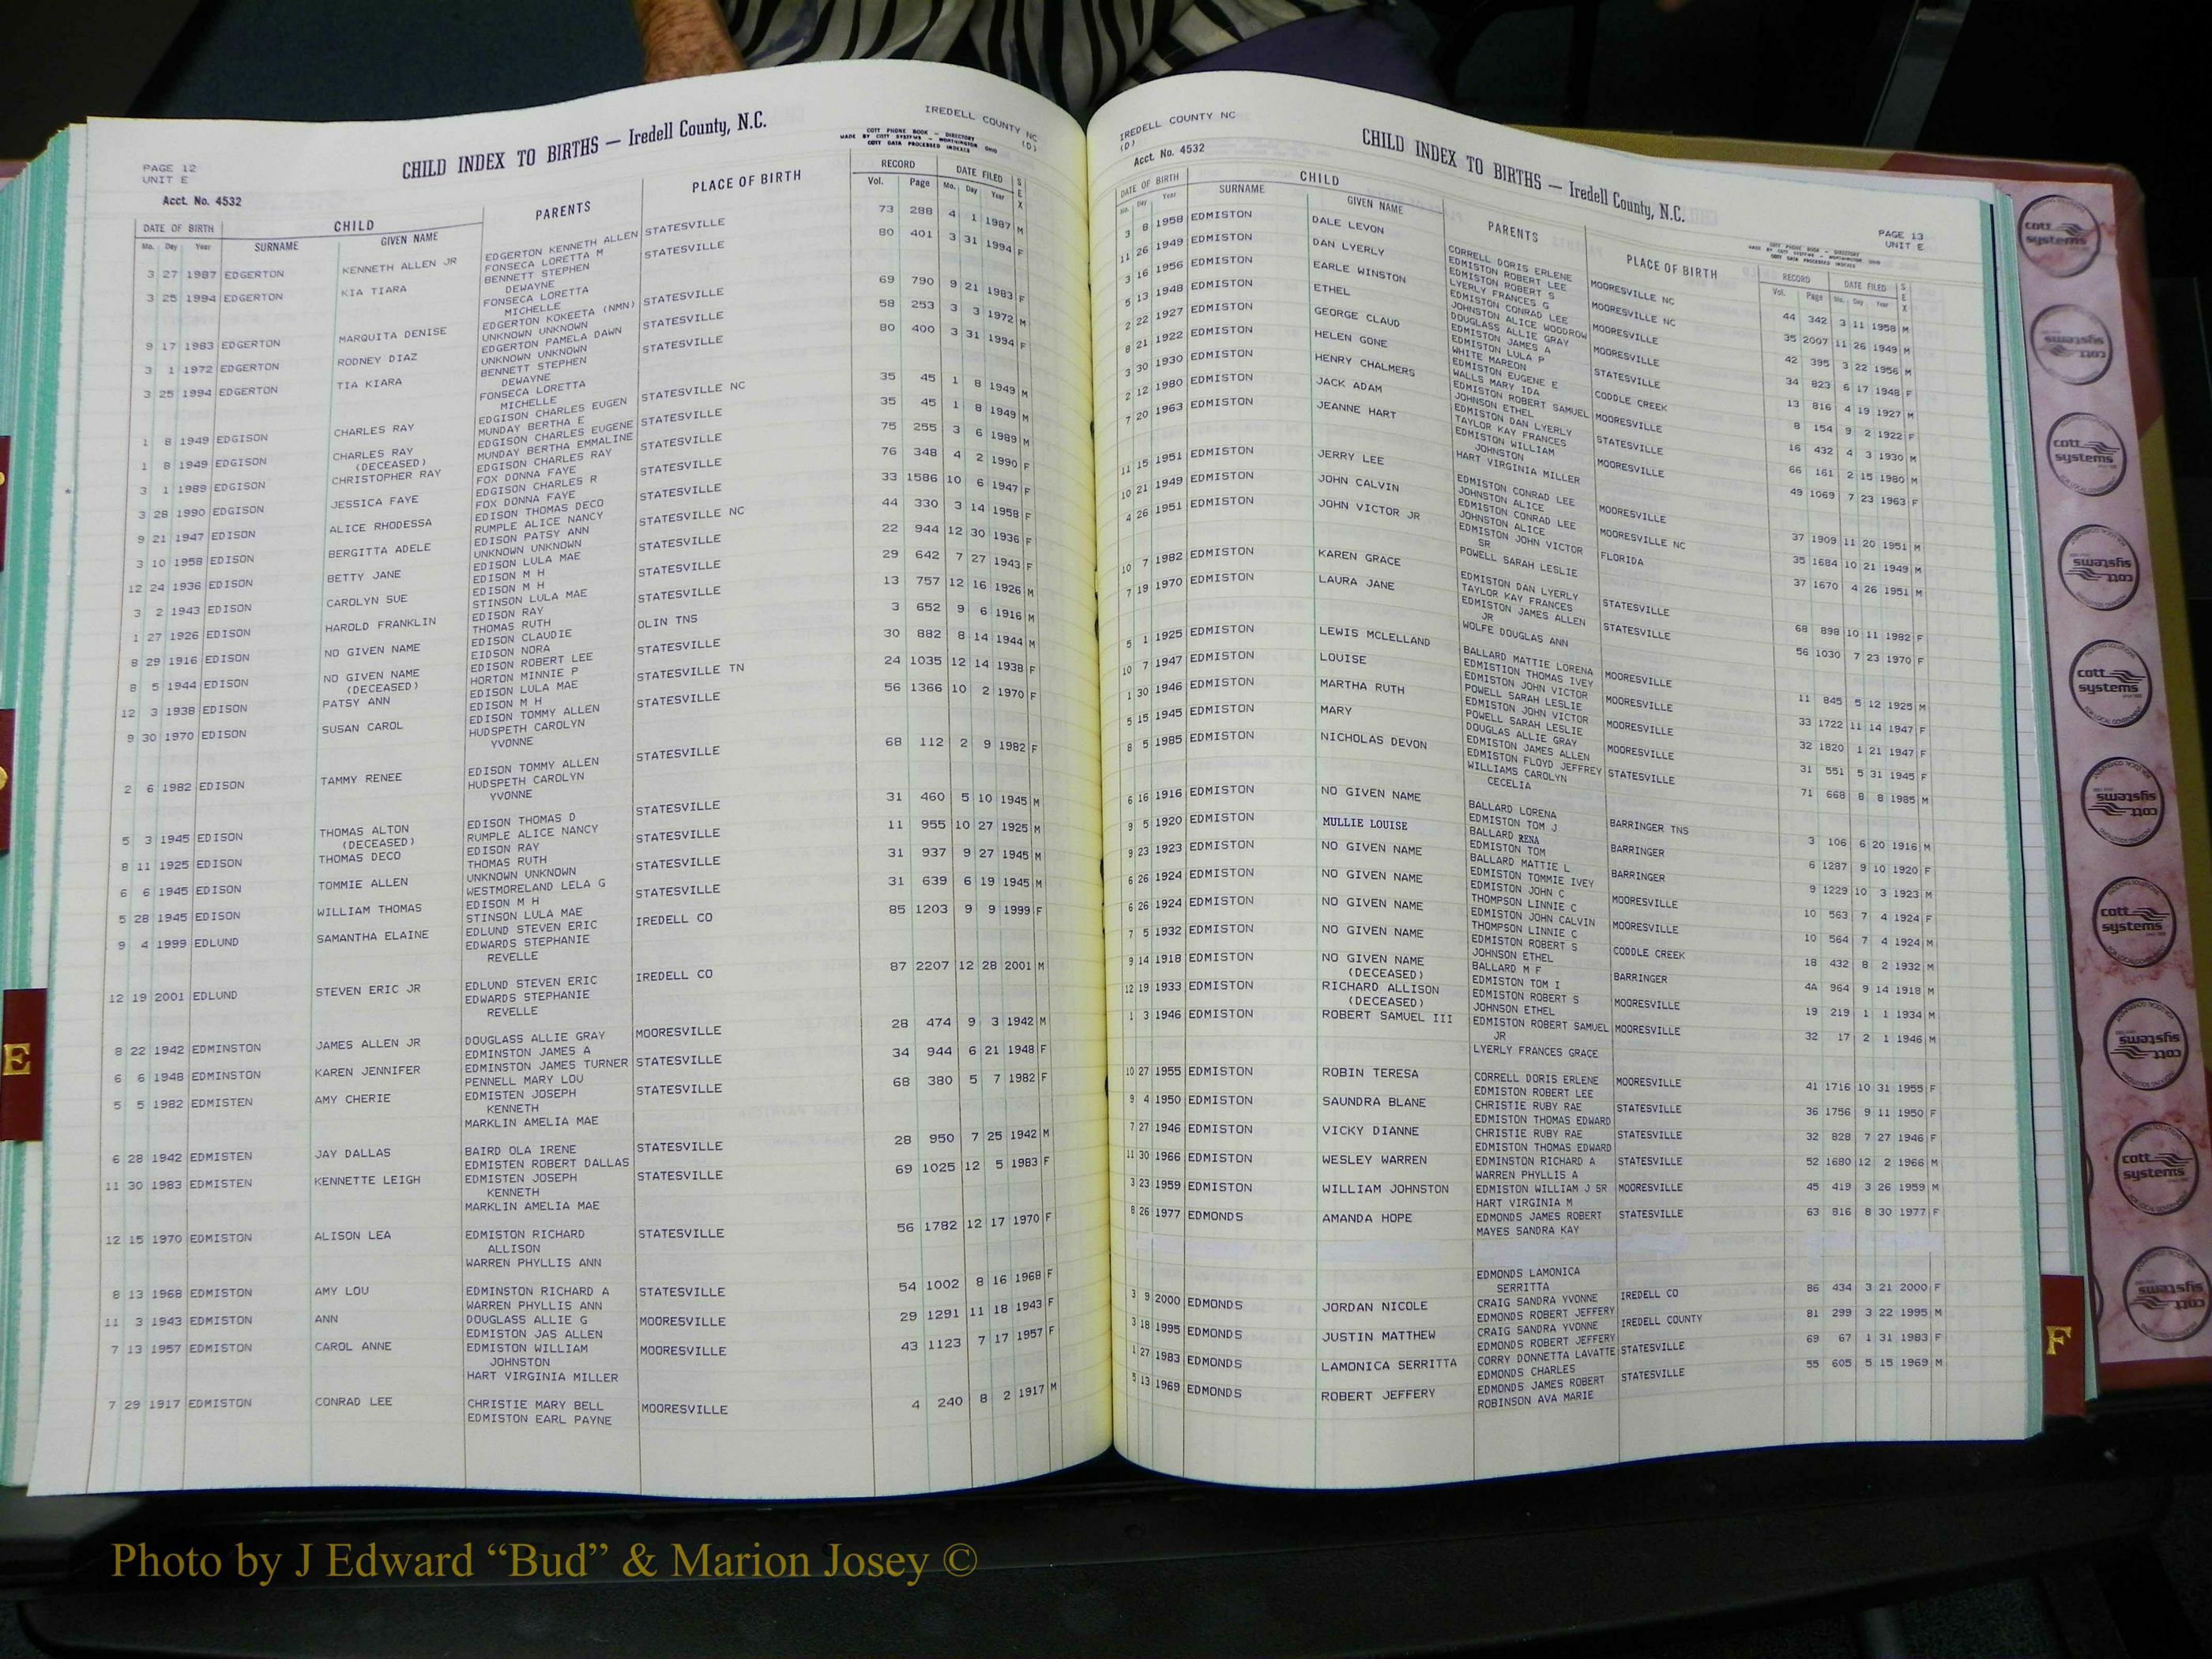 IREDELL COUNTY NC
(D)
CHILD INDEX TO BIRTHS — Iredell County, N.C.
COTT PHONE BOOK — DIRECTORY
MADE BY COTT SYSTEMS — WORTHINGTON OHIO
COTT DATA PROCESSED INDEXES
PAGE 12
UNIT E
Acct. No. 4532
DATE OF BIRTH CHILD PARENTS PLACE OF BIRTH RECORD DATE FILED SEX
Mo. Day Year SURNAME GIVEN NAME Vol. Page Mo. Day Year
3 27 1987 EDGERTON KENNETH ALLEN JR EDGERTON KENNETH ALLEN STATESVILLE 73 288 4 1 1987 M
FONSECA LORETTA M
3 25 1994 EDGERTON KIA TIARA BENNETT STEPHEN STATESVILLE 80 401 3 31 1994 F
DEWAYNE
FONSECA LORETTA
MICHELLE
9 17 1983 EDGERTON MARQUITA DENISE EDGERTON KOKEETA (NMN) STATESVILLE 69 790 9 21 1983 F
UNKNOWN UNKNOWN
3 1 1972 EDGERTON RODNEY DIAZ EDGERTON PAMELA DAWN STATESVILLE 58 253 3 3 1972 M
UNKNOWN UNKNOWN
3 25 1994 EDGERTON TIA KIARA BENNETT STEPHEN STATESVILLE 80 400 3 31 1994 F
DEWAYNE
FONSECA LORETTA
MICHELLE
1 8 1949 EDGISON CHARLES RAY EDGISON CHARLES EUGEN STATESVILLE NC 35 45 1 8 1949 M
MUNDAY BERTHA E
1 8 1949 EDGISON CHARLES RAY EDGISON CHARLES EUGENE STATESVILLE 35 45 1 8 1949 M
(DECEASED) MUNDAY BERTHA EMMALINE
3 1 1989 EDGISON CHRISTOPHER RAY EDGISON CHARLES RAY STATESVILLE 75 255 3 6 1989 M
FOX DONNA FAYE
3 28 1990 EDGISON JESSICA FAYE EDGISON CHARLES R STATESVILLE 76 348 4 2 1990 F
FOX DONNA FAYE
9 21 1947 EDISON ALICE RHODESSA EDISON THOMAS DECO STATESVILLE 33 1586 10 6 1947 F
RUMPLE ALICE NANCY
3 10 1958 EDISON BERGITTA ADELE EDISON PATSY ANN STATESVILLE NC 44 330 3 14 1958 F
UNKNOWN UNKNOWN
12 24 1936 EDISON BETTY JANE EDISON LULA MAE STATESVILLE 22 944 12 30 1936 F
EDISON M H
3 2 1943 EDISON CAROLYN SUE EDISON M H STATESVILLE 29 642 7 27 1943 F
STINSON LULA MAE
1 27 1926 EDISON HAROLD FRANKLIN EDISON RAY STATESVILLE 13 757 12 16 1926 M
THOMAS RUTH
8 29 1916 EDISON NO GIVEN NAME EDISON CLAUDIE OLIN TNS 3 652 9 6 1916 M
EIDSON NORA
8 5 1944 EDISON NO GIVEN NAME EDISON ROBERT LEE STATESVILLE 30 882 8 14 1944 M
(DECEASED) HORTON MINNIE P
12 3 1938 EDISON PATSY ANN EDISON LULA MAE STATESVILLE TN 24 1035 12 14 1938 F
EDISON M H
9 30 1970 EDISON SUSAN CAROL EDISON TOMMY ALLEN STATESVILLE 56 1366 10 2 1970 F
HUDSPETH CAROLYN
YVONNE
2 6 1982 EDISON TAMMY RENEE EDISON TOMMY ALLEN STATESVILLE 68 112 2 9 1982 F
HUDSPETH CAROLYN
YVONNE
5 3 1945 EDISON THOMAS ALTON EDISON THOMAS D STATESVILLE 31 460 5 10 1945 M
(DECEASED) RUMPLE ALICE NANCY
8 11 1925 EDISON THOMAS DECO EDISON RAY STATESVILLE 11 955 10 27 1925 M
THOMAS RUTH
6 6 1945 EDISON TOMMIE ALLEN UNKNOWN UNKNOWN STATESVILLE 31 937 9 27 1945 M
WESTMORELAND LELA G
5 28 1945 EDISON WILLIAM THOMAS EDISON M H STATESVILLE 31 639 6 19 1945 M
STINSON LULA MAE
9 4 1999 EDLUND SAMANTHA ELAINE EDLUND STEVEN ERIC IREDELL CO 85 1203 9 9 1999 F
EDWARDS STEPHANIE
REVELLE
12 19 2001 EDLUND STEVEN ERIC JR EDLUND STEVEN ERIC IREDELL CO 87 2207 12 28 2001 M
EDWARDS STEPHANIE
REVELLE
8 22 1942 EDMINSTON JAMES ALLEN JR DOUGLASS ALLIE GRAY MOORESVILLE 28 474 9 3 1942 M
EDMINSTON JAMES A
6 6 1948 EDMINSTON KAREN JENNIFER EDMINSTON JAMES TURNER STATESVILLE 34 944 6 21 1948 F
PENNELL MARY LOU
5 5 1982 EDMISTEN AMY CHERIE EDMISTEN JOSEPH STATESVILLE 68 380 5 7 1982 F
KENNETH
MARKLIN AMELIA MAE
6 28 1942 EDMISTEN JAY DALLAS BAIRD OLA IRENE STATESVILLE 28 950 7 25 1942 M
EDMISTEN ROBERT DALLAS
11 30 1983 EDMISTEN KENNETTE LEIGH EDMISTEN JOSEPH STATESVILLE 69 1025 12 5 1983 F
KENNETH
MARKLIN AMELIA MAE
12 15 1970 EDMISTON ALISON LEA EDMISTON RICHARD STATESVILLE 56 1782 12 17 1970 F
ALLISON
WARREN PHYLLIS ANN
8 13 1968 EDMISTON AMY LOU EDMINSTON RICHARD A STATESVILLE 54 1002 8 16 1968 F
WARREN PHYLLIS ANN
11 3 1943 EDMISTON ANN DOUGLASS ALLIE G MOORESVILLE 29 1291 11 18 1943 F
EDMISTON JAS ALLEN
7 13 1957 EDMISTON CAROL ANNE EDMISTON WILLIAM MOORESVILLE 43 1123 7 17 1957 F
JOHNSTON
HART VIRGINIA MILLER
7 29 1917 EDMISTON CONRAD LEE CHRISTIE MARY BELL MOORESVILLE 4 240 8 2 1917 M
EDMISTON EARL PAYNE
IREDELL COUNTY NC
(D)
Acct. No. 4532
CHILD INDEX TO BIRTHS — Iredell County, N.C.
PAGE 13
UNIT E
COTT PHONE BOOK — DIRECTORY
MADE BY COTT SYSTEMS — WORTHINGTON OHIO
COTT DATA PROCESSED INDEXES
DATE OF BIRTH CHILD PARENTS PLACE OF BIRTH RECORD DATE FILED SEX
Mo. Day Year SURNAME GIVEN NAME Vol. Page Mo. Day Year
3 8 1958 EDMISTON DALE LEVON CORRELL DORIS ERLENE MOORESVILLE NC 44 342 3 11 1958 M
EDMISTON ROBERT LEE
11 26 1949 EDMISTON DAN LYERLY EDMISTON ROBERT S MOORESVILLE NC 35 2007 11 26 1949 M
LYERLY FRANCES G
3 16 1956 EDMISTON EARLE WINSTON EDMISTON CONRAD LEE MOORESVILLE 42 395 3 22 1956 M
JOHNSTON ALICE WOODROW
5 13 1948 EDMISTON ETHEL DOUGLASS ALLIE GRAY MOORESVILLE 34 823 6 17 1948 F
EDMISTON JAMES A
2 22 1927 EDMISTON GEORGE CLAUD EDMISTON LULA P STATESVILLE 13 816 4 19 1927 M
WHITE MAREON
8 21 1922 EDMISTON HELEN GONE EDMISTON EUGENE E CODDLE CREEK 8 154 9 2 1922 F
WALLS MARY IDA
3 30 1930 EDMISTON HENRY CHALMERS EDMISTON ROBERT SAMUEL MOORESVILLE 16 432 4 3 1930 M
JOHNSON ETHEL
2 12 1980 EDMISTON JACK ADAM EDMISTON DAN LYERLY STATESVILLE 66 161 2 15 1980 M
TAYLOR KAY FRANCES
7 20 1963 EDMISTON JEANNE HART EDMISTON WILLIAM MOORESVILLE 49 1069 7 23 1963 F
JOHNSTON
HART VIRGINIA MILLER
11 15 1951 EDMISTON JERRY LEE EDMISTON CONRAD LEE MOORESVILLE 37 1909 11 20 1951 M
JOHNSTON ALICE
10 21 1949 EDMISTON JOHN CALVIN EDMISTON CONRAD LEE MOORESVILLE NC 35 1684 10 21 1949 M
JOHNSTON ALICE
4 26 1951 EDMISTON JOHN VICTOR JR EDMISTON JOHN VICTOR FLORIDA 37 1670 4 26 1951 M
SR
POWELL SARAH LESLIE
10 7 1982 EDMISTON KAREN GRACE EDMISTON DAN LYERLY STATESVILLE 68 898 10 11 1982 F
TAYLOR KAY FRANCES
7 19 1970 EDMISTON LAURA JANE EDMISTON JAMES ALLEN STATESVILLE 56 1030 7 23 1970 F
JR
WOLFE DOUGLAS ANN
5 1 1925 EDMISTON LEWIS MCLELLAND BALLARD MATTIE LORENA MOORESVILLE 11 845 5 12 1925 M
EDMISTION THOMAS IVEY
10 7 1947 EDMISTON LOUISE EDMISTON JOHN VICTOR MOORESVILLE 33 1722 11 14 1947 F
POWELL SARAH LESLIE
1 30 1946 EDMISTON MARTHA RUTH EDMISTON JOHN VICTOR MOORESVILLE 32 1820 1 21 1947 F
POWELL SARAH LESLIE
5 15 1945 EDMISTON MARY DOUGLAS ALLIE GRAY MOORESVILLE 31 551 5 31 1945 F
EDMISTON JAMES ALLEN
8 5 1985 EDMISTON NICHOLAS DEVON EDMISTON FLOYD JEFFREY STATESVILLE 71 668 8 8 1985 M
WILLIAMS CAROLYN
CECELIA
6 16 1916 EDMISTON NO GIVEN NAME BALLARD LORENA BARRINGER TNS 3 106 6 20 1916 M
EDMISTON TOM J
9 5 1920 EDMISTON MULLIE LOUISE BALLARD RENA BARRINGER 6 1287 9 10 1920 F
EDMISTON TOM
9 23 1923 EDMISTON NO GIVEN NAME BALLARD MATTIE L BARRINGER 9 1229 10 3 1923 M
EDMISTON TOMMIE IVEY
6 26 1924 EDMISTON NO GIVEN NAME EDMISTON JOHN C MOORESVILLE 10 563 7 4 1924 F
THOMPSON LINNIE C
6 26 1924 EDMISTON NO GIVEN NAME EDMISTON JOHN CALVIN MOORESVILLE 10 564 7 4 1924 M
THOMPSON LINNIE C
7 5 1932 EDMISTON NO GIVEN NAME EDMISTON ROBERT S CODDLE CREEK 18 432 8 2 1932 M
JOHNSON ETHEL
9 14 1918 EDMISTON NO GIVEN NAME BALLARD M F BARRINGER 4A 964 9 14 1918 M
(DECEASED) EDMISTON TOM I
12 19 1933 EDMISTON RICHARD ALLISON EDMISTON ROBERT S MOORESVILLE 19 219 1 1 1934 M
(DECEASED) JOHNSON ETHEL
1 3 1946 EDMISTON ROBERT SAMUEL III EDMISTON ROBERT SAMUEL MOORESVILLE 32 17 2 1 1946 M
JR
LYERLY FRANCES GRACE
10 27 1955 EDMISTON ROBIN TERESA CORRELL DORIS ERLENE MOORESVILLE 41 1716 10 31 1955 F
EDMISTON ROBERT LEE
9 4 1950 EDMISTON SAUNDRA BLANE CHRISTIE RUBY RAE STATESVILLE 36 1756 9 11 1950 F
EDMISTON THOMAS EDWARD
7 27 1946 EDMISTON VICKY DIANNE CHRISTIE RUBY RAE STATESVILLE 32 828 7 27 1946 F
EDMISTON THOMAS EDWARD
11 30 1966 EDMISTON WESLEY WARREN EDMINSTON RICHARD A STATESVILLE 52 1680 12 2 1966 M
WARREN PHYLLIS A
3 23 1959 EDMISTON WILLIAM JOHNSTON EDMISTON WILLIAM J SR MOORESVILLE 45 419 3 26 1959 M
HART VIRGINIA M
8 26 1977 EDMONDS AMANDA HOPE EDMONDS JAMES ROBERT STATESVILLE 63 816 8 30 1977 F
MAYES SANDRA KAY
EDMONDS LAMONICA
SERRITTA
3 9 2000 EDMONDS JORDAN NICOLE CRAIG SANDRA YVONNE IREDELL CO 86 434 3 21 2000 F
EDMONDS ROBERT JEFFERY
3 18 1995 EDMONDS JUSTIN MATTHEW CRAIG SANDRA YVONNE IREDELL COUNTY 81 299 3 22 1995 M
EDMONDS ROBERT JEFFERY
1 27 1983 EDMONDS LAMONICA SERRITTA CORRY DONNETTA LAVATTE STATESVILLE 69 67 1 31 1983 F
EDMONDS CHARLES
5 13 1969 EDMONDS ROBERT JEFFERY EDMONDS JAMES ROBERT STATESVILLE 55 605 5 15 1969 M
ROBINSON AVA MARIE
E
F
cott systems
cott systems
cott systems
cott systems
cott systems
cott systems
cott systems
cott systems
cott systems
cott systems
Photo by J Edward “Bud” & Marion Josey ©